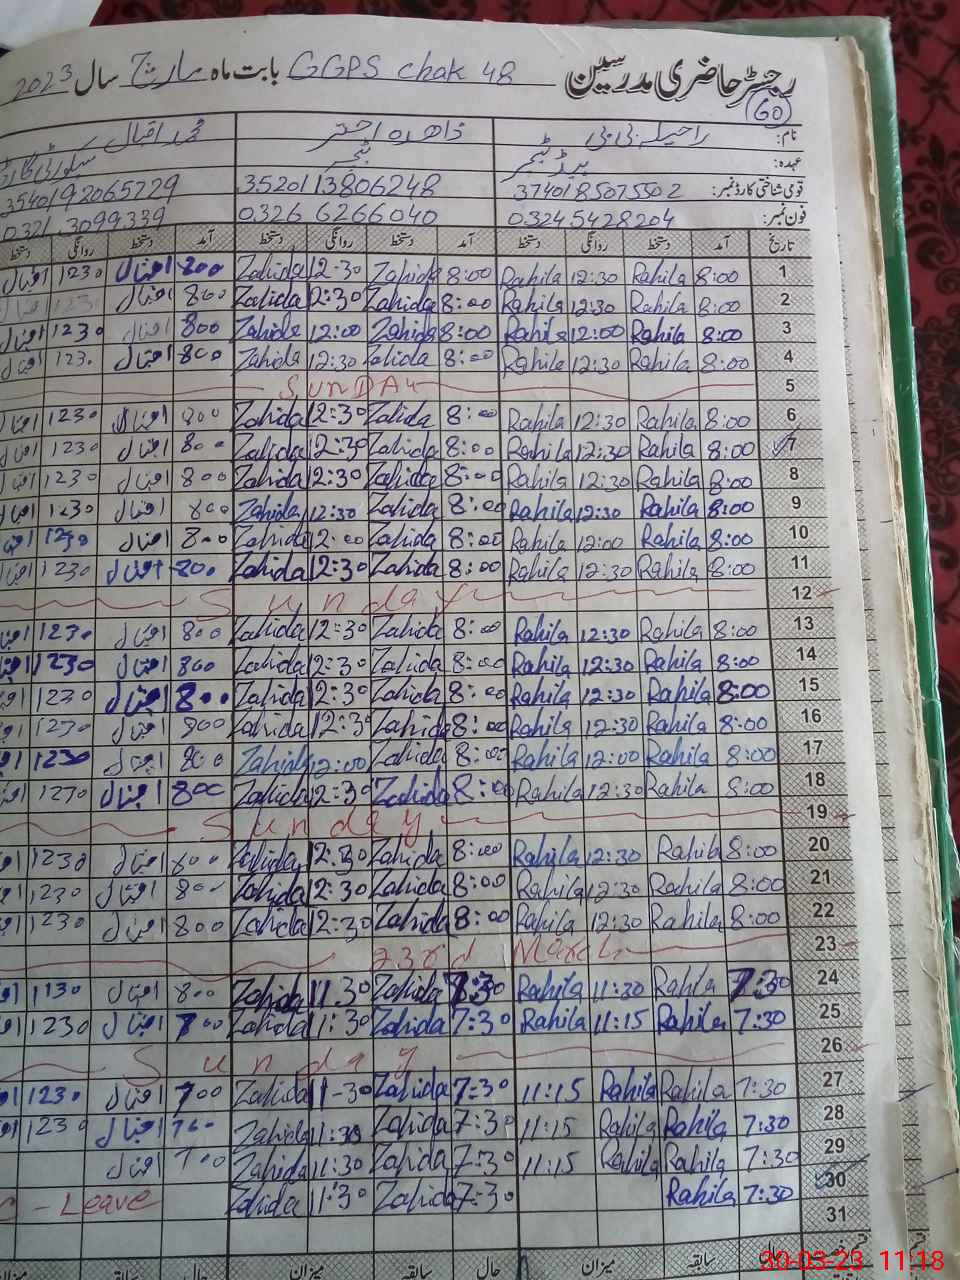 رجسٹر حاضری مدرسین GGPS chak 48 بابت ماہ مارچ سال 2023
60
نام: راحیلہ بی بی زاھدہ اختر محمد اقبال
عہدہ: ہیڈ ٹیچر ٹیچر سکورٹی گارڈ
قومی شناختی کارڈ نمبر: 3740185075502 3520113806248 3540192065729
فون نمبر: 03245428204 0326 6266040 0321.3099339
تاریخ آمد دستخط روانگی دستخط آمد دستخط روانگی دستخط آمد دستخط روانگی
1 8:00 Rahila 12:30 Rahila 8:00 Zahida 12:30 Zahida 800 اقبال 1230 اقبال
2 8:00 Rahila 12:30 Rahila 8:00 Zahida 12:30 Zahida 800 اقبال 1230
3 8:00 Rahila 12:00 Rahila 8:00 Zahida 12:00 Zahida 800 اقبال 1230 اقبال
4 8:00 Rahila 12:30 Rahila 8:00 Zahida 12:30 Zahida 800 اقبال 1230 اقبال
5 SUNDAY
6 8:00 Rahila 12:30 Rahila 8:00 Zahida 12:30 Zahida 800 اقبال 1230 اقبال
7 8:00 Rahila 12:30 Rahila 8:00 Zahida 12:30 Zahida 800 اقبال 1230 اقبال
8 8:00 Rahila 12:30 Rahila 8:00 Zahida 12:30 Zahida 800 اقبال 1230 اقبال
9 8:00 Rahila 12:30 Rahila 8:00 Zahida 12:30 Zahida 800 اقبال 1230 اقبال
10 8:00 Rahila 12:00 Rahila 8:00 Zahida 12:00 Zahida 800 اقبال 1230 اقبال
11 8:00 Rahila 12:30 Rahila 8:00 Zahida 12:30 Zahida 800 اقبال 1230 اقبال
12 Sunday
13 8:00 Rahila 12:30 Rahila 8:00 Zahida 12:30 Zahida 800 اقبال 1230
14 8:00 Rahila 12:30 Rahila 8:00 Zahida 12:30 Zahida 800 اقبال 1230
15 8:00 Rahila 12:30 Rahila 8:00 Zahida 12:30 Zahida 800 اقبال 1230
16 8:00 Rahila 12:30 Rahila 8:00 Zahida 12:30 Zahida 800 اقبال 1230
17 8:00 Rahila 12:00 Rahila 8:00 Zahida 12:00 Zahida 800 اقبال 1230
18 8:00 Rahila 12:30 Rahila 8:00 Zahida 12:30 Zahida 800 اقبال 1230
19 Sunday
20 8:00 Rahila 12:30 Rahila 8:00 Zahida 12:30 Zahida 800 اقبال 1230
21 8:00 Rahila 12:30 Rahila 8:00 Zahida 12:30 Zahida 800 اقبال 1230
22 8:00 Rahila 12:30 Rahila 8:00 Zahida 12:30 Zahida 800 اقبال 1230
23 23rd March
24 7:30 Rahila 11:30 Rahila 7:30 Zahida 11:30 Zahida 800 اقبال 1130
25 7:30 Rahila 11:15 Rahila 7:30 Zahida 11:30 Zahida 700 اقبال 1230
26 Sunday
27 7:30 Rahila Rahila 11:15 7:30 Zahida 11-30 Zahida 700 اقبال 1230
28 7:30 Rahila Rahila 11:15 7:30 Zahida 11:30 Zahida 700 اقبال 1230
29 7:30 Rahila Rahila 11:15 7:30 Zahida 11:30 Zahida 700 اقبال
30 7:30 Rahila 7:30 Zahida 11:30 Zahida - Leave
31
حال سابقہ میزان حال سابقہ میزان حال سابقہ میزان
30-03-23 11:18